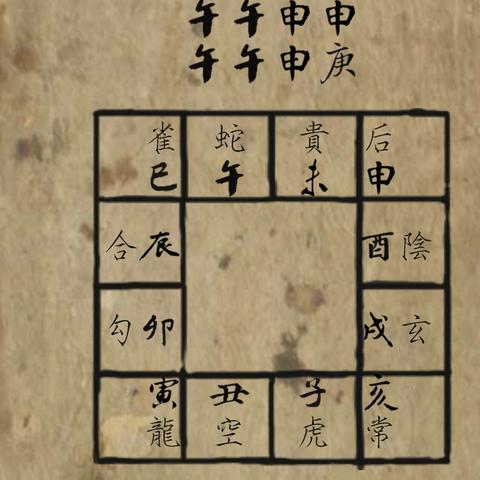 午午申申
午午申庚
雀 蛇 貴 后
巳 午 未 申
合辰 酉陰
勾卯 戌玄
寅 丑 子 亥
龍 空 虎 常